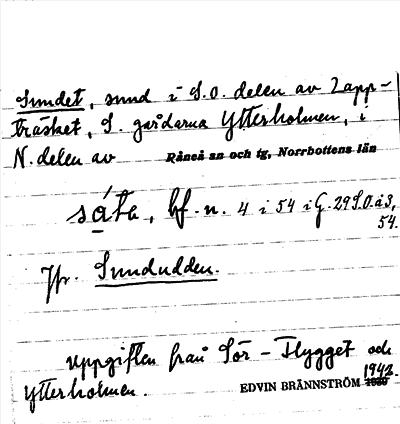 Sundet, sund i S.O. delen av Lapp-
träsket, S. gårdarna Ytterholmen, i
N. delen av Råneå sn och tg, Norrbottens län
såta, bf. n. 4 i 54 i G. 29 S.O. à 3,
54.
Jfr. Sundudden.
Uppgiften från Sör-Flygget och
Ytterholmen. EDVIN BRÄNNSTRÖM 1942.